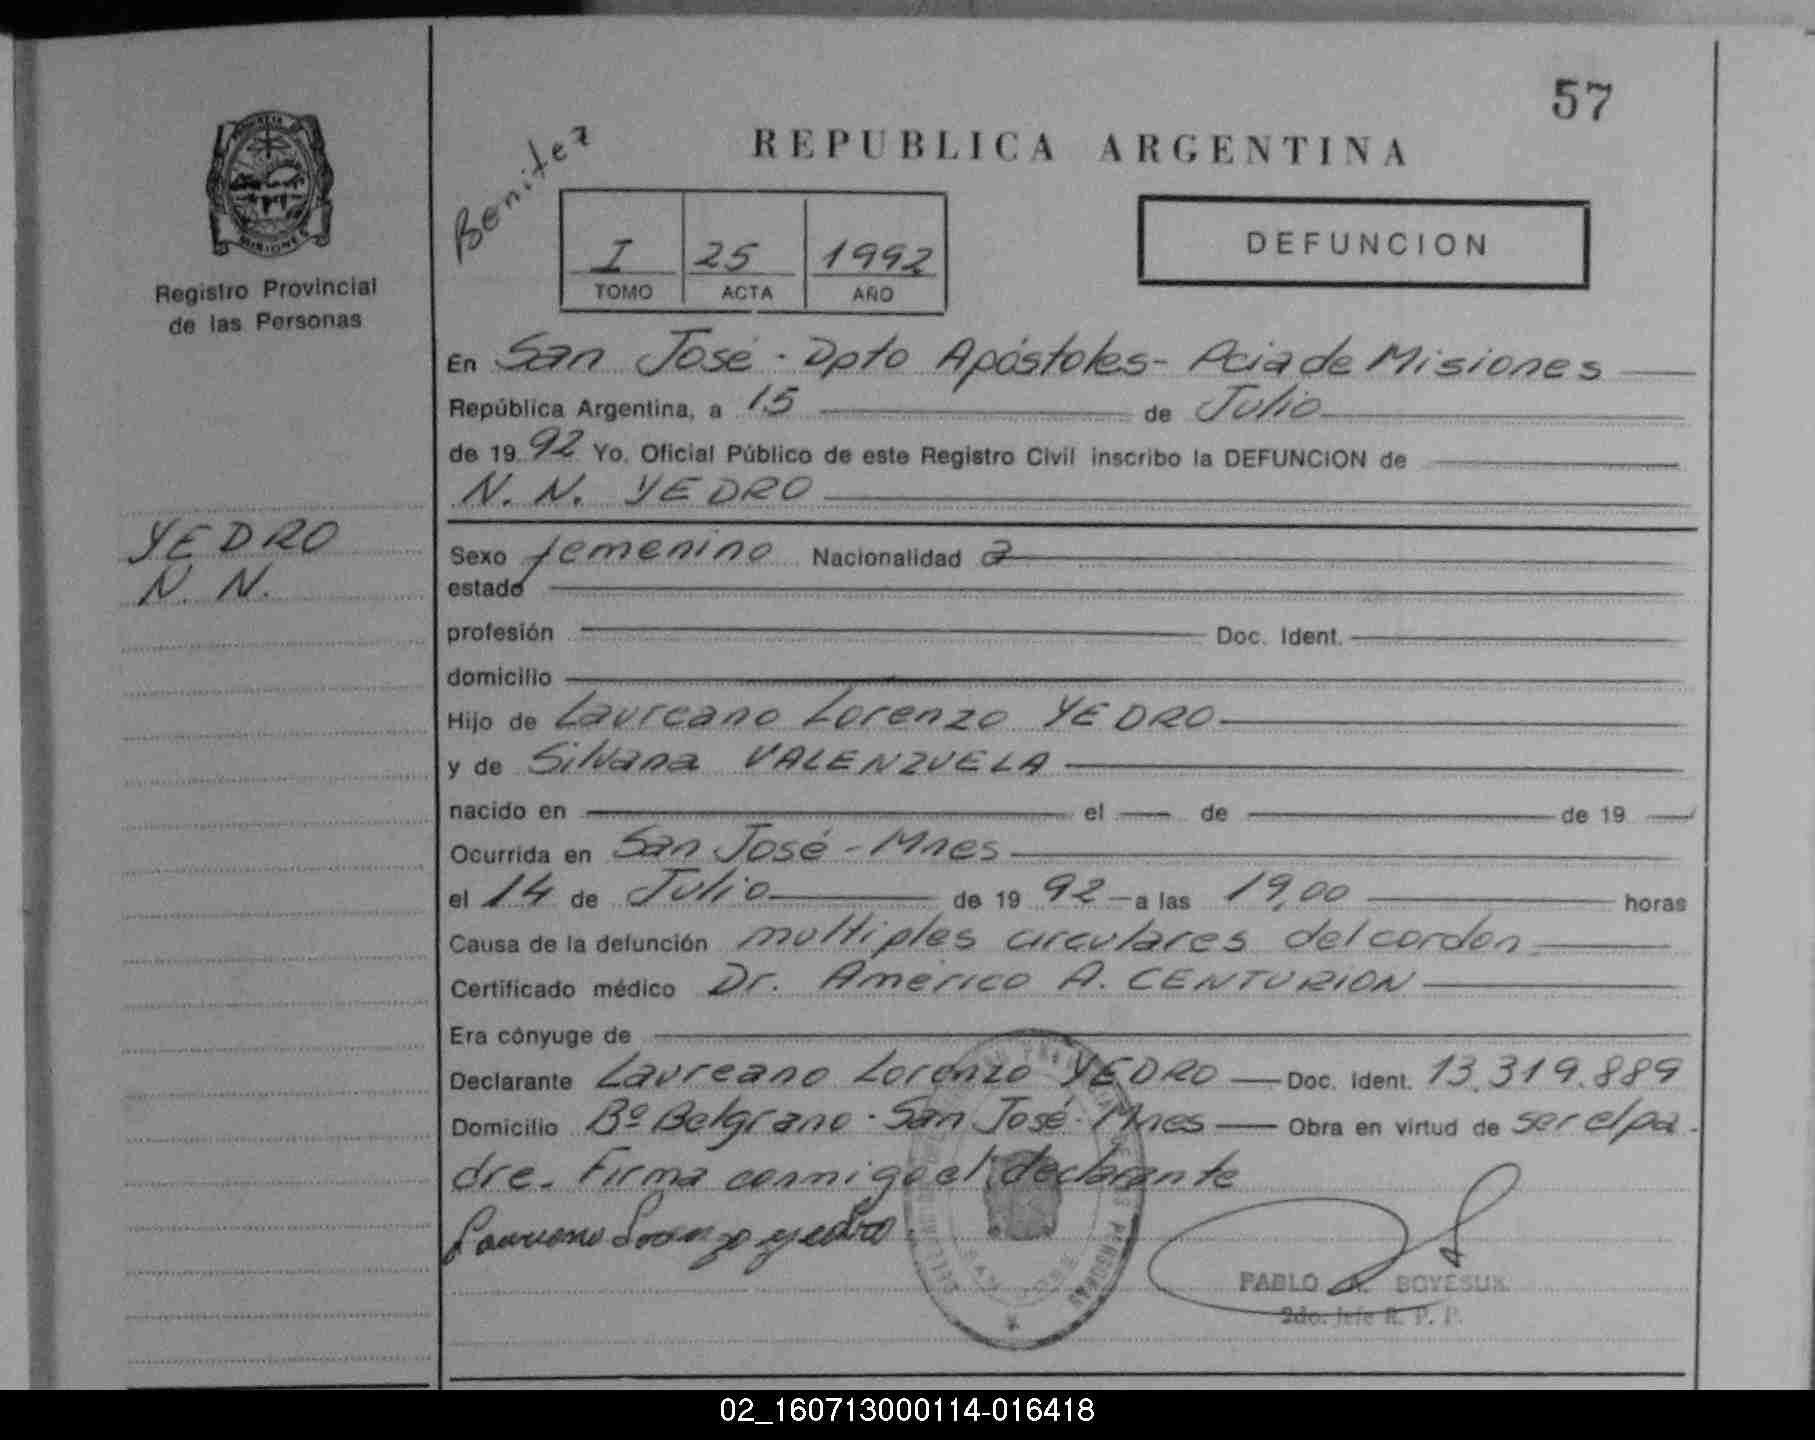 57
REPUBLICA ARGENTINA
Benitez
I 25 1992
TOMO ACTA AÑO
DEFUNCION
PROVINCIA DE
MISIONES
Registro Provincial
de las Personas
En San José - Dpto Apóstoles - Pcia de Misiones
República Argentina, a 15 de Julio
de 1992 Yo, Oficial Público de este Registro Civil inscribo la DEFUNCION de
N. N. YEDRO
YEDRO
N. N.
Sexo femenino Nacionalidad a
estado
profesión Doc. Ident.
domicilio
Hijo de Laureano Lorenzo YEDRO
y de Silvana VALENZUELA
nacido en el de de 19
Ocurrida en San José - Mnes
el 14 de Julio de 1992 a las 19,00 horas
Causa de la defunción multiples circulares del cordon
Certificado médico Dr. Américo A. CENTURION
Era cónyuge de
Declarante Laureano Lorenzo YEDRO Doc. Ident. 13.319.889
Domicilio Bº Belgrano - San José - Mnes Obra en virtud de ser el pa-
dre. Firma conmigo el declarante
Laureano Lorenzo yedro
SAN JOSE
PABLO BOYESUK
2do. Jefe R. P. P.
02_160713000114-016418